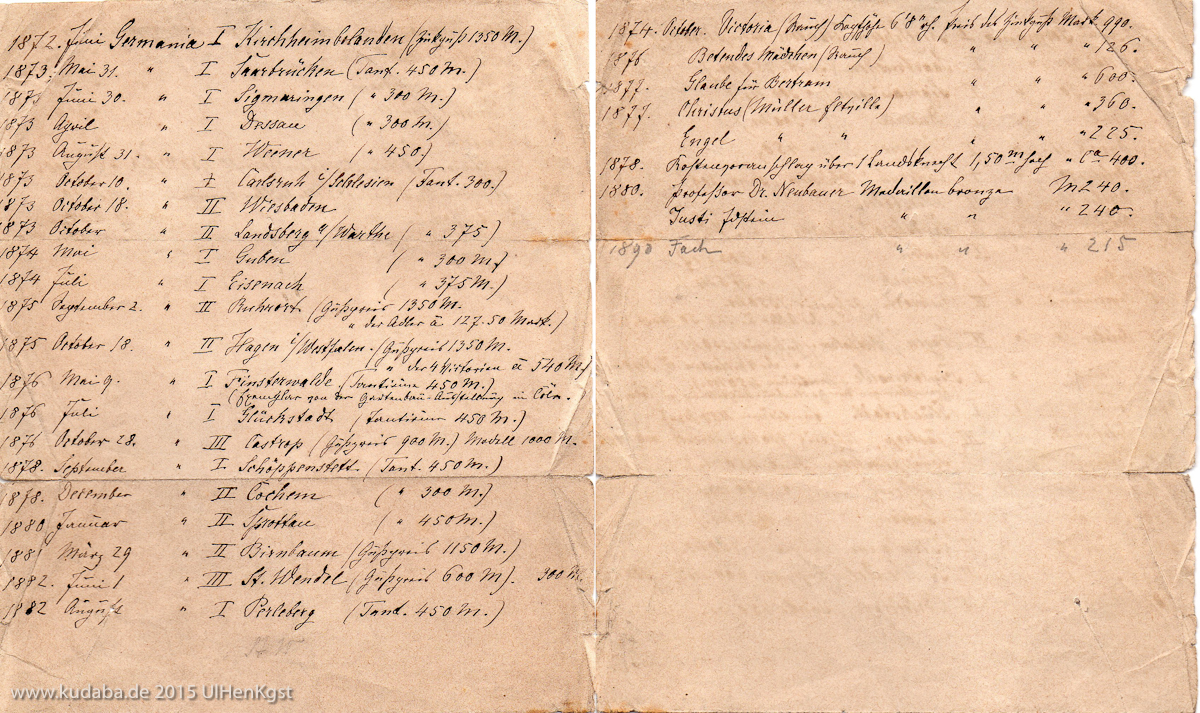 1872. Juni Germania I Kirchheimbolanden (Zinkguß 1350 M.)
1873. Mai 31. " I Saarbrücken (Tant. 450 M.)
1873 Juni 30. " I Sigmaringen ( " 300 M.)
1873 April " I Dessau ( " 300 M.)
1873 August 31. " I Weener ( " 450.)
1873 October 10. " I Carlsruh i/Schlesien (Tant. 300.)
1873 October 18. " II Wiesbaden
1873 October " II Landsberg a/Warthe ( " 375)
1874 Mai " I Guben ( " 300 M)
1874 Juli " I Eisenach ( " 375 M.)
1875 September 2. " II Ruhrort (Gußpreis 1350 M.
" der Adler à 127.50 Mark.)
1875 October 18. " II Hagen i/Westfalen. (Gußpreis 1350 M.
" der 4 Victorien à 540 M)
1876 Mai 9. " I Finsterwalde (Tantieme 450 M.)
(Exemplar von der Gartenbau-Ausstellung in Cöln.
1876 Juli " I Glückstadt (Tantieme 450 M.)
1876 October 28. " III Castrop (Gußpreis 900 M.) Modell 1000 M.
1878. September " I Schöppenstett. (Tant. 450 M.)
1878. December " II Cochem ( " 300 M.)
1880 Januar " II Sprottau ( " 450 M.)
1881 März 29 " II Birnbaum (Gußpreis 1150 M.)
1882. Juni 1 " III St. Wendel (Gußpreis 600 M). 300 M.
1882 August " I Perleberg (Tant. 450 M.)
1874. October. Victoria (Rauch) Kopfhöhe 6' 8" rh. Preis des Zinkguß Mark 990.
1876 Betendes Mädchen (Rauch) " " " 126.
1877. Glaube für Bertram " " " 600.
1877. Christus (Müller " " " 360.
Engel " " " " " 225.
1878. Kostenvoranschlag über 1 Landsknecht 1,50 m hoch " Ca 400.
1880. Professor Dr. Neubauer Medaillon bronze M 240.
Justi Idstein " " " 240.
1890 Fach " " " 215
www.kudaba.de 2015 UlHenKgst